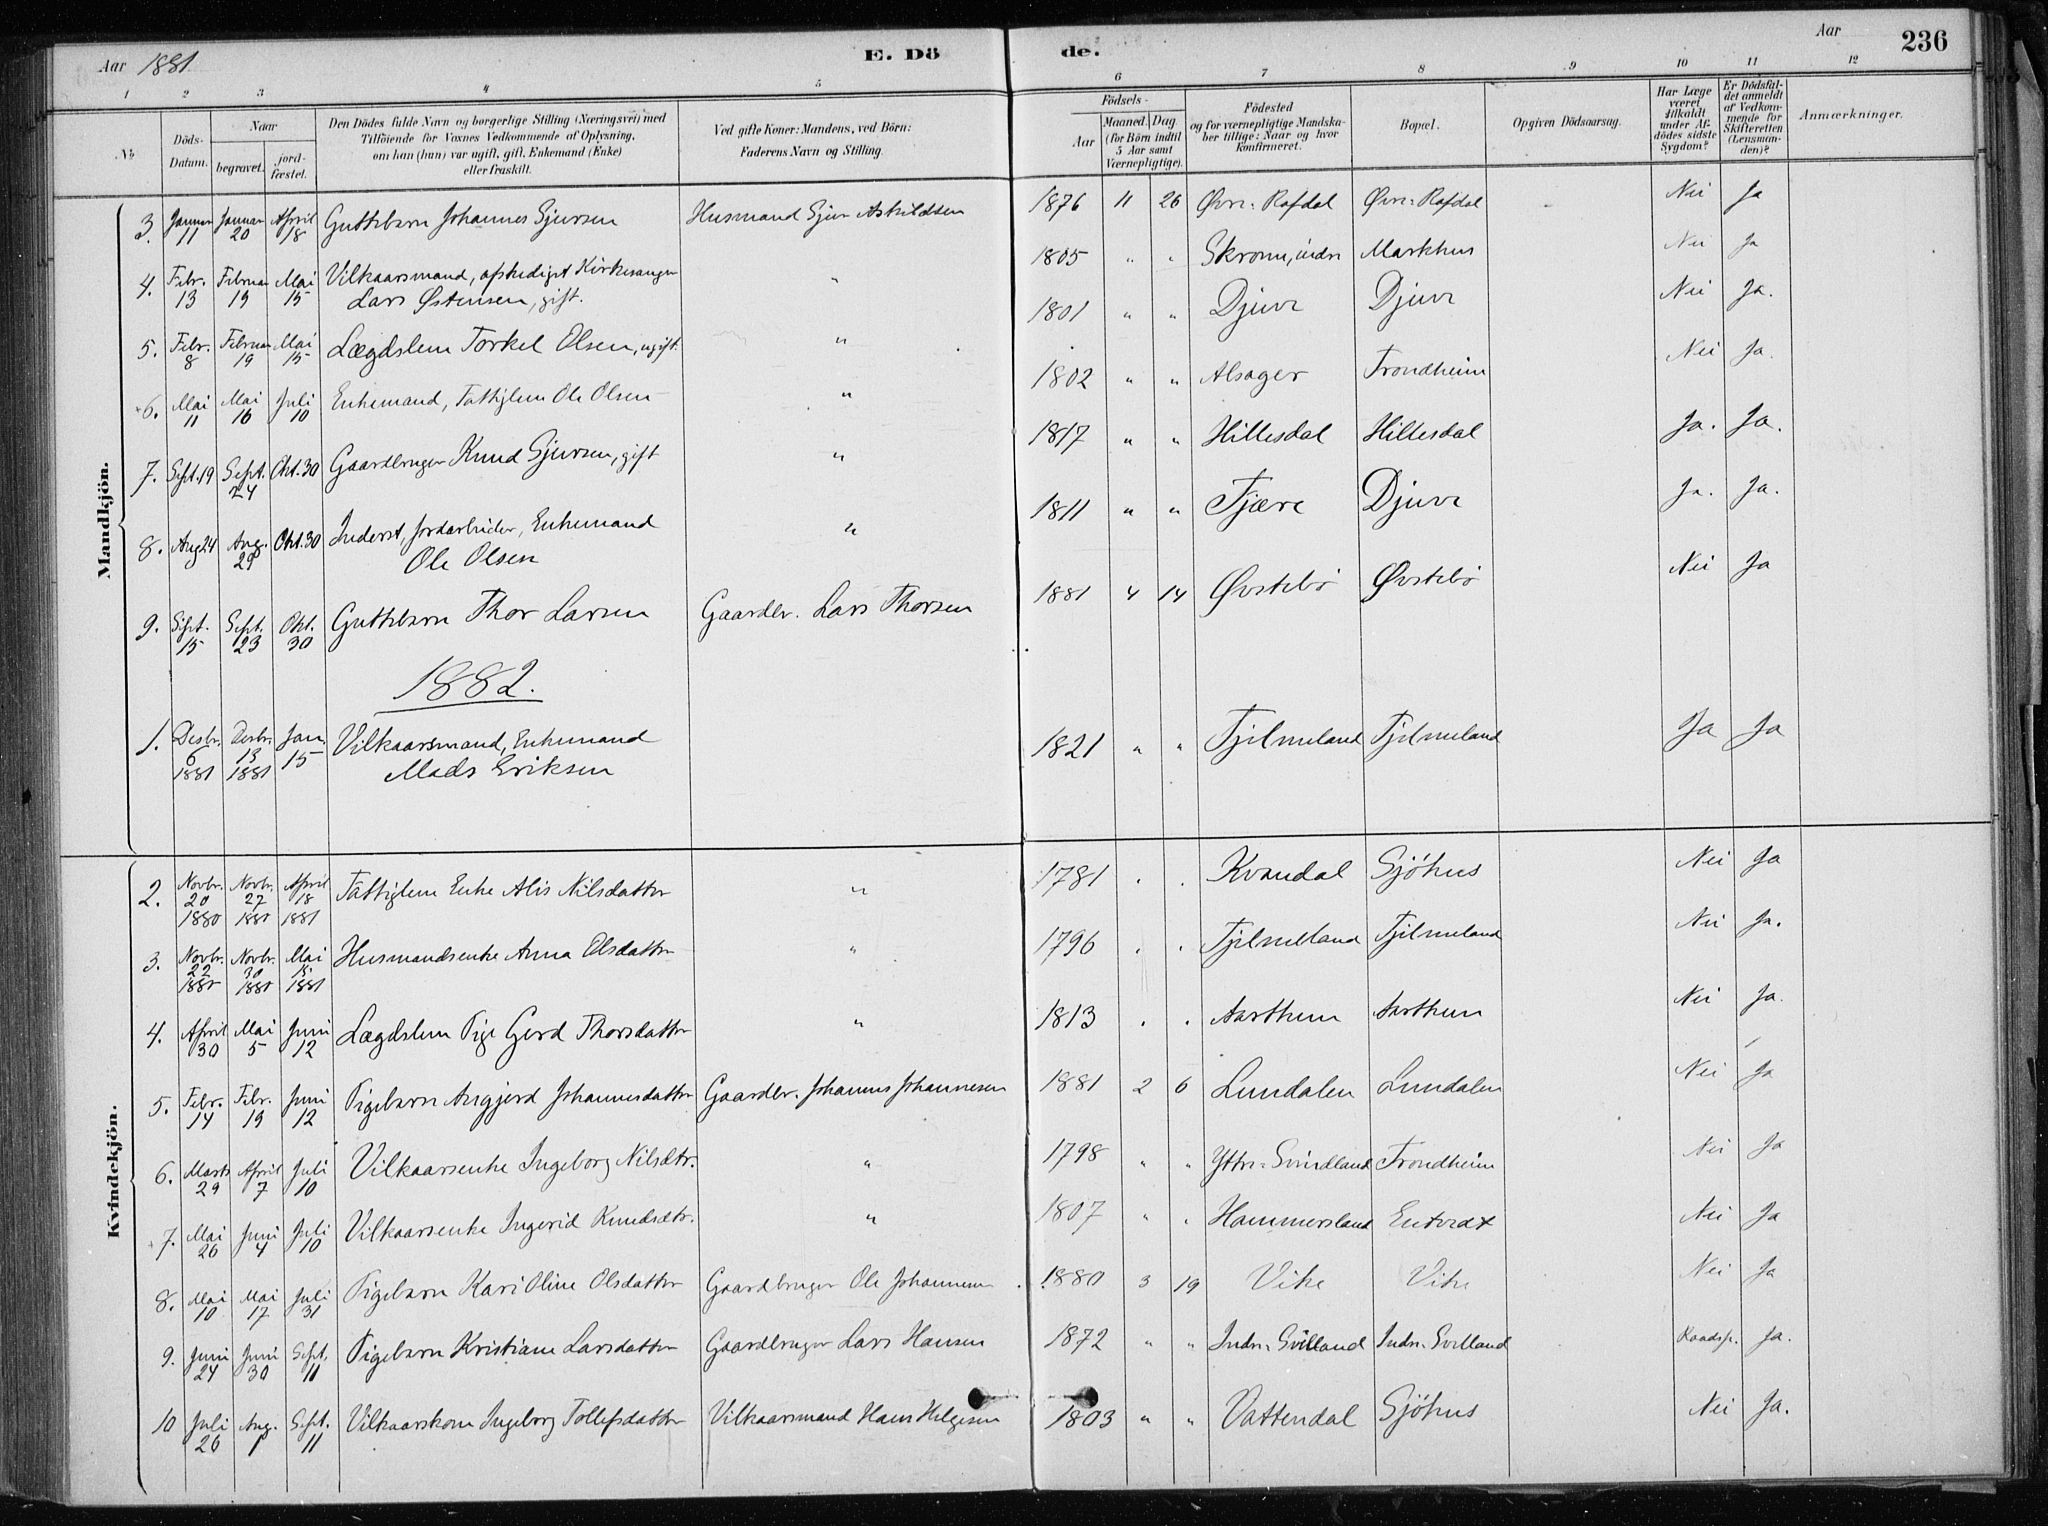 Aar 1881. E. Dö de. Aar 236
1 2 3 4 5 6 7 8 9 10 11 12
No
Döds-Datum.
Naar
begravet.
jordfæstet.
Den Dödes fulde Navn og borgerlige Stilling (Næringsvei) med
Tilföiende for Voxnes Vedkommende af Oplysning,
om han (hun) var ugift, gift, Enkemand (Enke)
eller fraskilt.
Ved gifte Koner: Mandens, ved Börn:
Faderens Navn og Stilling.
Födsels-
Aar
Maaned. Dag
(for Börn indtil
5 Aar samt
Værnepligtige).
Födested
og for værnepligtige Mandskaber tillige: Naar og hvor
konfirmeret.
Bopæl.
Opgiven Dödsaarsag.
Har Læge
været
tilkaldt
under Afdödes sidste
Sygdom?
Er Dödsfaldet anmeldt
af Vedkommende for
Skifteretten
(Lensmanden)?
Anmærkninger.
Mandkjön.
3. Januar 11 Januar 20 April 18 Guttebarn Johannes Sjursen Husmand Sjur Askildsen 1876 11 26 Øvre-Rafdal Øvre-Rafdal Nei Ja
4. Febr. 13 Februar 19 Mai 15 Vilkaarsmand, afskediget Kirkesanger
Lars Østensen, gift. " 1805 " " Skromme, indre Markhus Nei Ja
5. Febr. 8 Februar 19 Mai 15 Lægdslem Torkel Olsen, ugift. " 1801 " " Djuve Djuve Nei Ja.
6. Mai 11 Mai 16 Juli 10 Enkemand, Fattiglem Ole Olsen " 1802 " " Alsager Trondheim Nei Ja.
7. Sept. 19 Sept. 24 Okt. 30 Gaardbruger Knud Sjursen, gift " 1817 " " Hillesdal Hillesdal Ja. Ja.
8. Aug 24 Aug. 29 Okt. 30 Inderst, Jordarbeider, Enkemand
Ole Olsen " 1811 " " Fjære Djuve Ja. Ja.
9. Sept. 15 Sept. 23 Okt. 30 Guttebarn Thor Larsen Gaardbr. Lars Thorsen 1881 4 14 Øvstebø Øvstebø Nei Ja
1882.
1. Desbr. 6 1881 Desbr. 13 1881 Jan. 15 Vilkaarsmand, Enkemand
Mads Eriksen 1821 " " Fjelmeland Fjelmeland Ja Ja
Kvindekjön.
2. Novbr. 20 1880 Novbr. 27 1880 April 18 1881 Fattiglem Enke Alis Nilsdatter " 1781 " " Kvandal Sjöhus Nei Ja
3. Novbr. 22 1880 Novbr. 30 1880 Mai 15 1881 Husmandsenke Anna Olsdatter " 1796 " " Fjelmeland Fjelmeland Nei Ja.
4. April 30 Mai 5 Juni 12 Lægdslem Pige Gerd Thorsdatter " 1813 " " Aarthun Aarthun Nei Ja.
5. Febr. 14 Febr. 19 Juni 12 Pigebarn Angjerd Johannesdatter Gaardbr. Johannes Johannesen 1881 2 6 Lundalen Lundalen Nei Ja
6. Marts 29 April 7 Juli 10 Vilkaarsenke Ingeborg Nilsdtr. " 1798 " " Yttre-Svindland Trondheim Nei Ja
7. Mai 26 Juni 4 Juli 10 Vilkaarsenke Ingerid Knudsdtr. " 1807 " " Hammersland Entvedt Nei Ja
8. Mai 10 Mai 17 Juli 31 Pigebarn Kari Oline Olsdatter Gaardbruger Ole Johannesen 1880 3 19 Vike Vike Nei Ja
9. Juni 24 Juni 30 Sept. 11 Pigebarn Kristiane Larsdatter Gaardbruger Lars Hansen 1872 " " Indre-Svilland Indre-Svilland Raadsp. Ja.
10 Juli 26 Aug. 1 Sept. 11 Vilkaarskone Ingeborg Tollefsdatter Vilkaarsmand Hans Helgesen 1803 " " Vattendal Sjöhus Nei Ja.